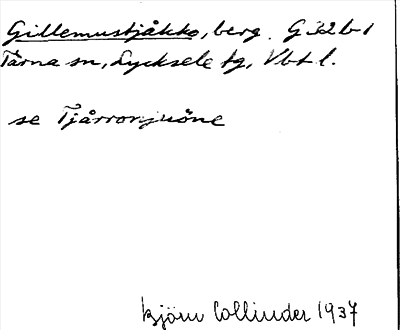 Gillemustjåkko, berg. G 32 b-1
Tärna sn, Lycksele lg, Vbt l.
se Tjårronjuöne
Björn Collinder 1937